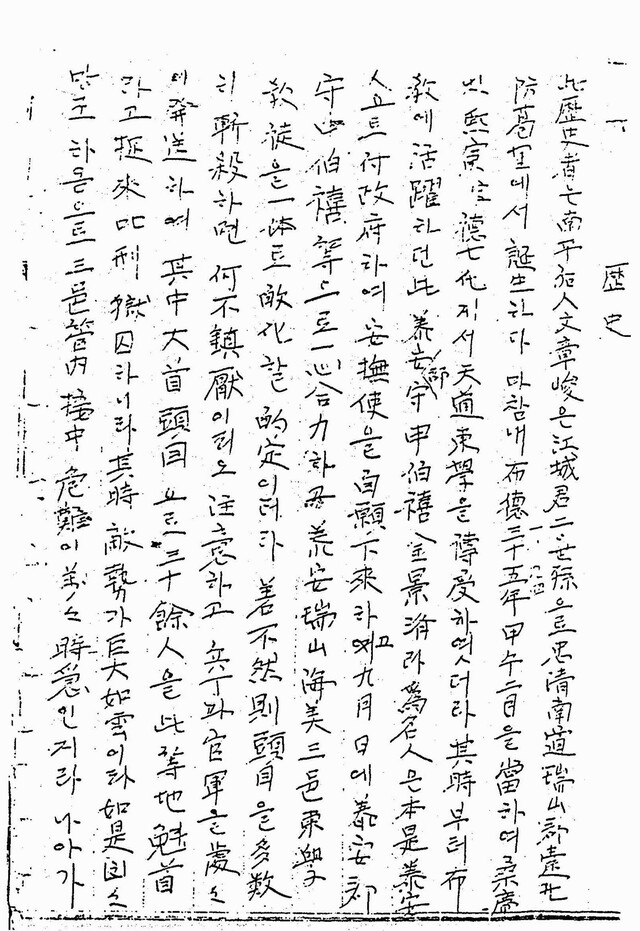 歷史
此歷史者는 南平后人 文章峻은 江城君 二 世孫으로 忠淸南道 瑞山郡 遠北
防葛里에서 誕生하다 마참내 布德 三十五年 甲午 二月을 當하여
德七化지서 天道東學을 傳受하엿더라 其時부터 布
敎에 活躍하던 此 泰安守 申伯禧 金景濟라 爲名人은 本是 泰安
人으로 付政府하여 安撫使을 自願下來하여고 九月 日에 泰安 郡
守 申伯禧 等으로 一心合力하고 泰安 瑞山 海美 三邑 東學
敎徒을 一體로 敵化할 的定이더라 若不然則 頭目을 多數
히 斬殺하면 何不鎭厭이리오 注意하고 兵丁과 官軍을 處々
에 發送하여 其中 大首頭目으로 三十餘人을 此等地 魁首
라고 捉來 때刑 獄囚하니라 其時 敵勢가 巨大如雲이라 如是 回々
만코 하믄으로 三邑 管內 接中 危難이 萬々 時急인지라 나아가